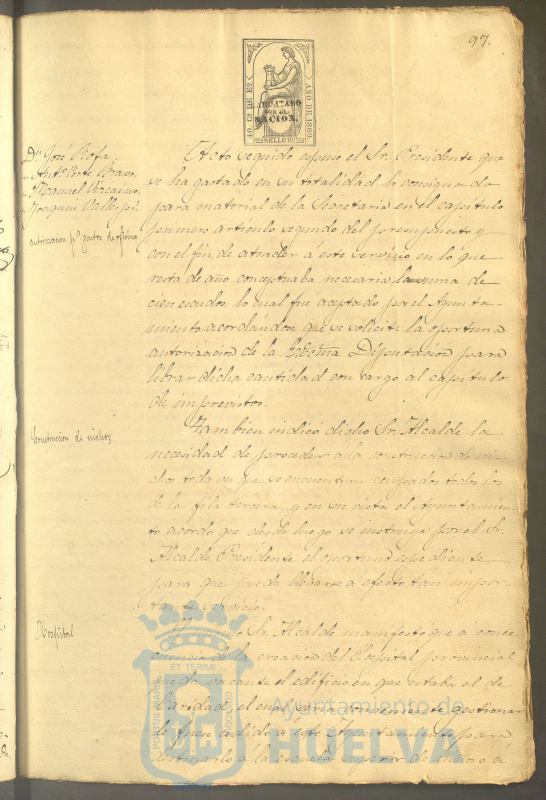 97.
40. Cs. DE Eo.
AÑO DE 1869.
HABILITADO
POR LA
NACION.
SELLO 9º
Dn. José Rofa
" Anto. Corte Bravo.
" Manuel Vizcaino
" Joaquin Vallejo
autorizacion pa. gastos de oficina
Acto seguido espuso el Sr. Presidente que
se ha gastado en su totalidad lo consignado
para material de la Secretaria en el capitulo
primero articulo segundo del presupuesto y
con el fin de atender á este servicio en lo que
resta de año conceptuaba necesaria la suma de
cien escudos lo cual fue aceptado por el Ayunta-
miento acordandose que se solicite la oportuna
autorizacion de la Excma Diputacion para
librar dicha cantidad con cargo al capitulo
de imprevistos.
Construcion de nichos
Tambien indicó dicho Sr. Alcalde la
necesidad de proceder a la construccion de ni-
chos toda vez que se encuentran ocupados todos los
de la fila tercera, y en su vista el Ayuntamien-
to acordo que desde luego se instruya por el Sr.
Alcalde Presidente el oportuno espediente
para que pueda llevarse a efecto tan impor-
tante servicio.
Hospital
El mismo Sr. Alcalde manifesto que a conse-
cuencia de la creacion del Hospital provincial
queda vacante el edificio en que estaba el de
Caridad, el cual seria conveniente gestionar
le fuese cedido á este Ayuntamiento para
destinarlo á la escuela superior de niños á
PORTUS MARIS
ET TERRÆ
CUSTODIA
Ayuntamiento de
HUELVA